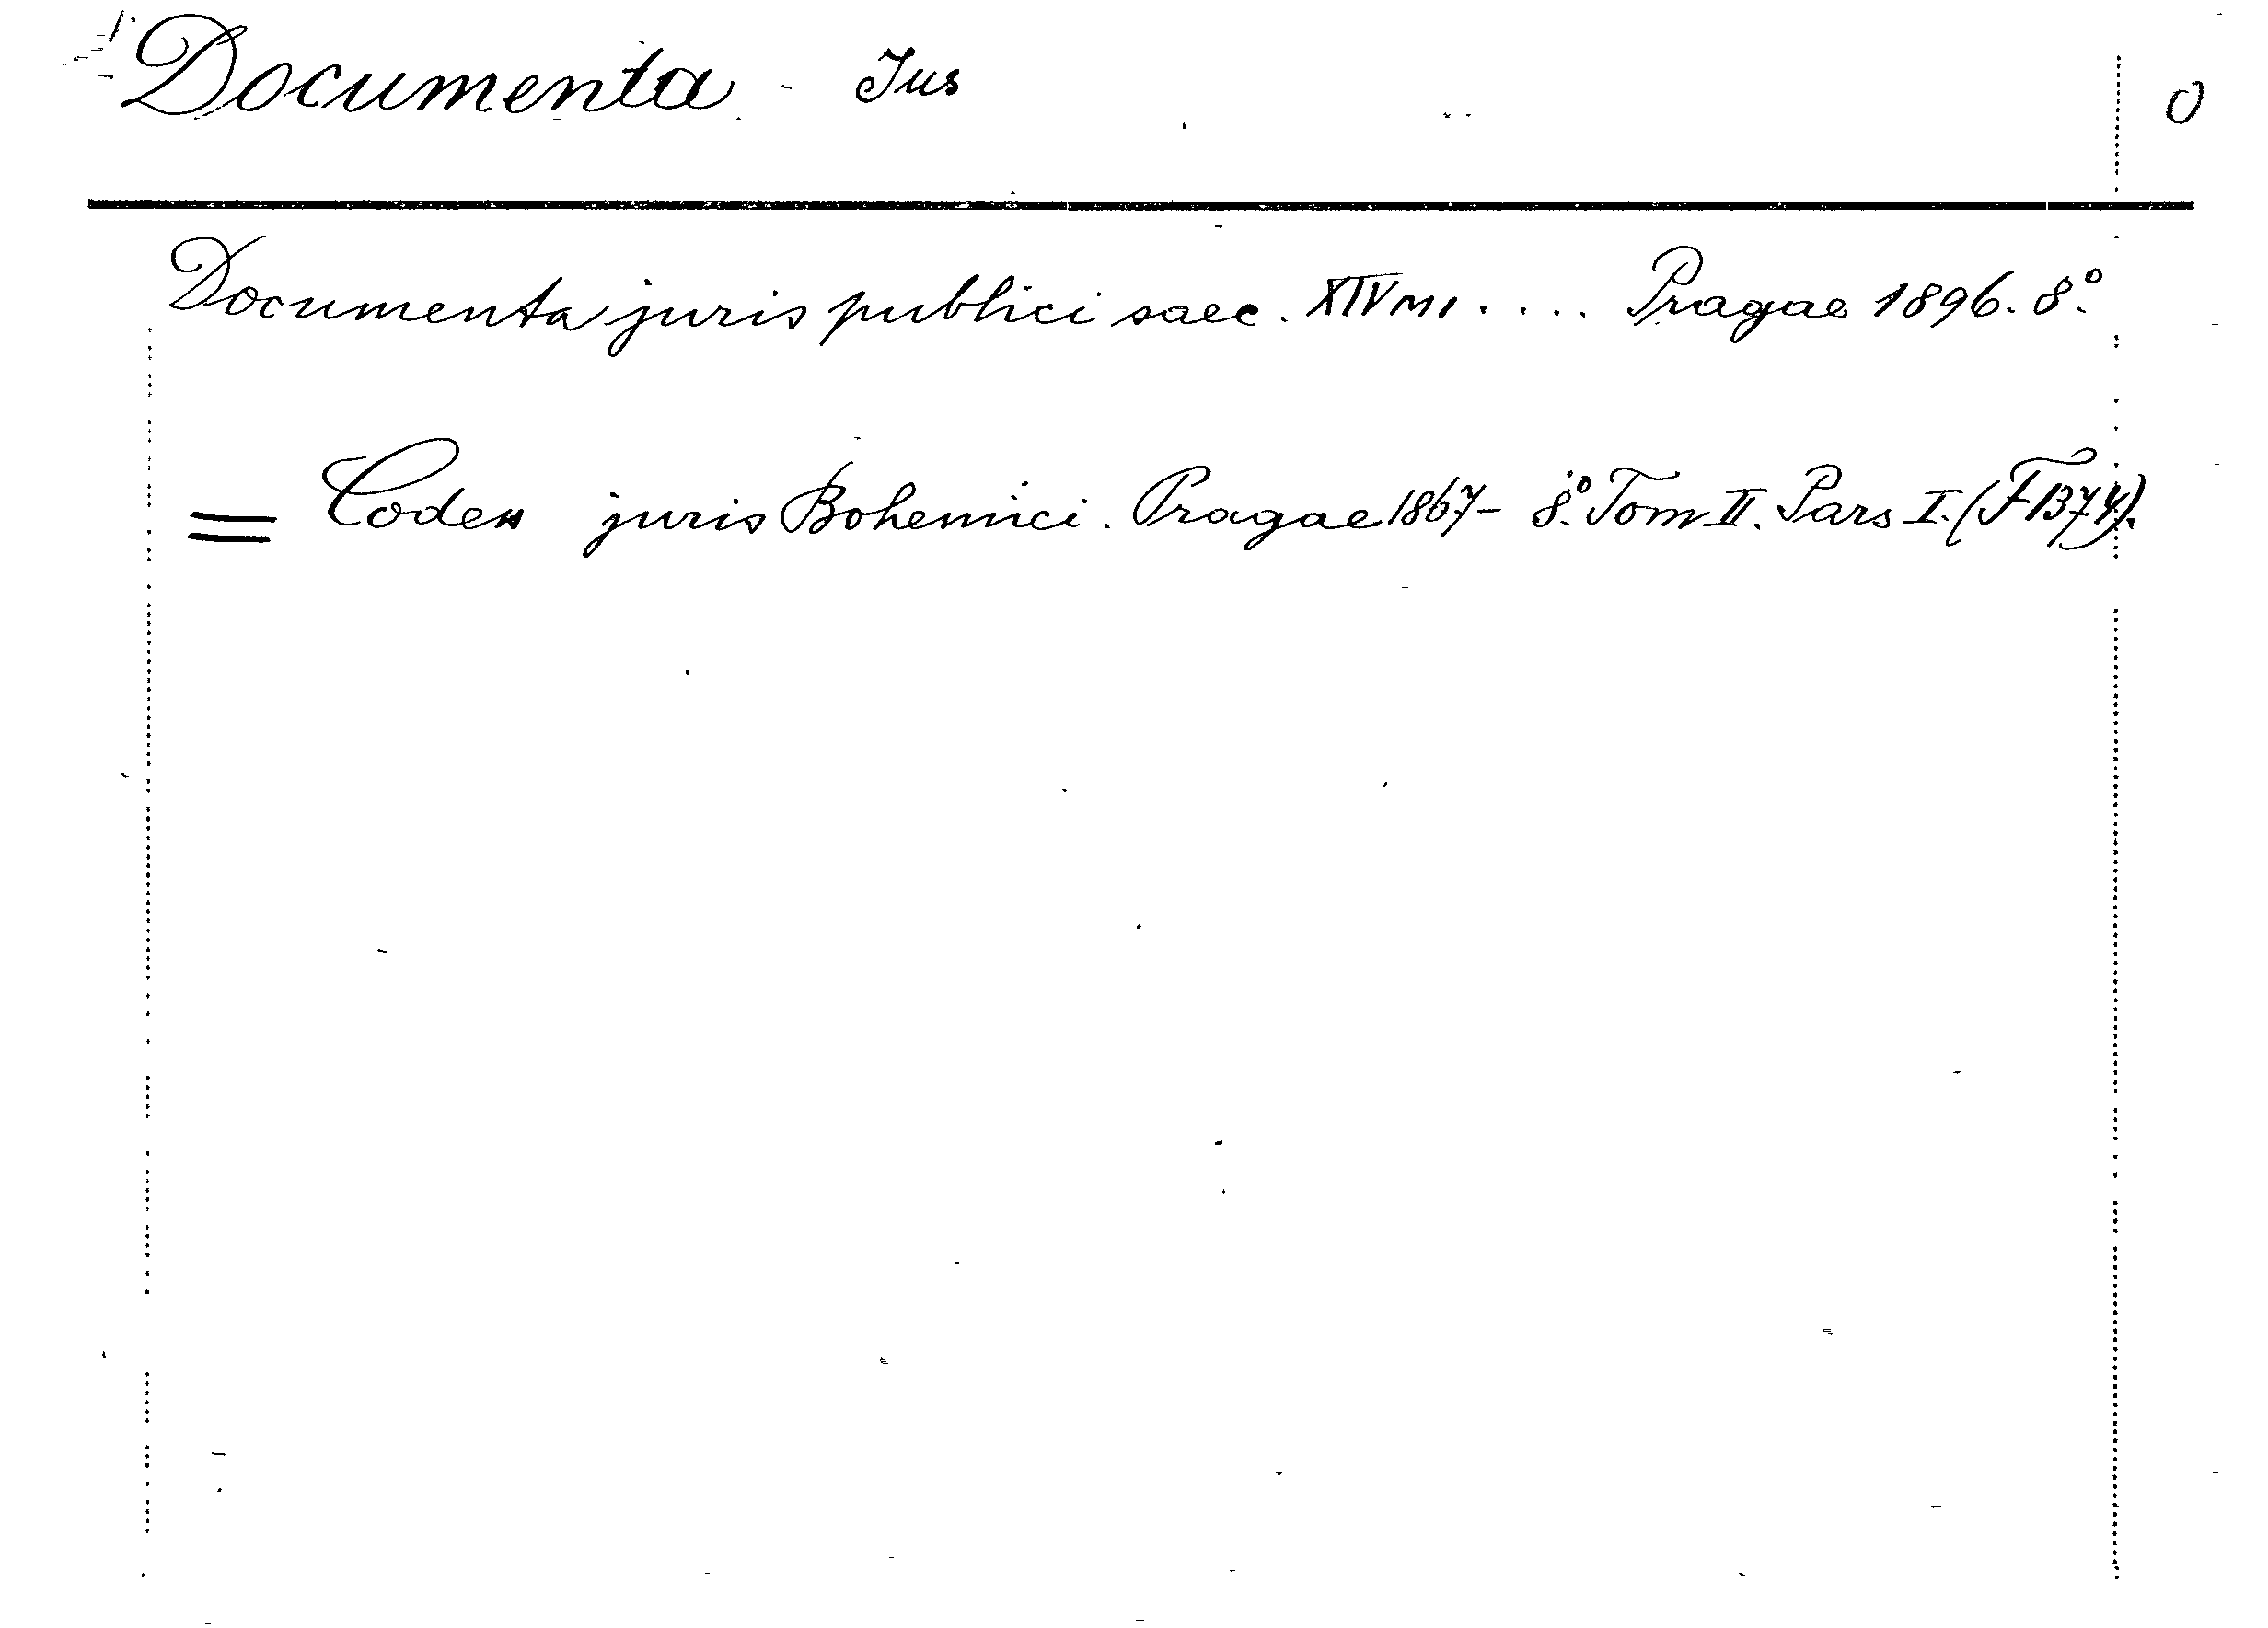 Documenta Jus O
Documenta juris publici saec. XIVmi .... Pragae 1896. 8°.
= Codex juris Bohemici. Pragae 1867- 8°. Tom II. Pars I. (F 1374).